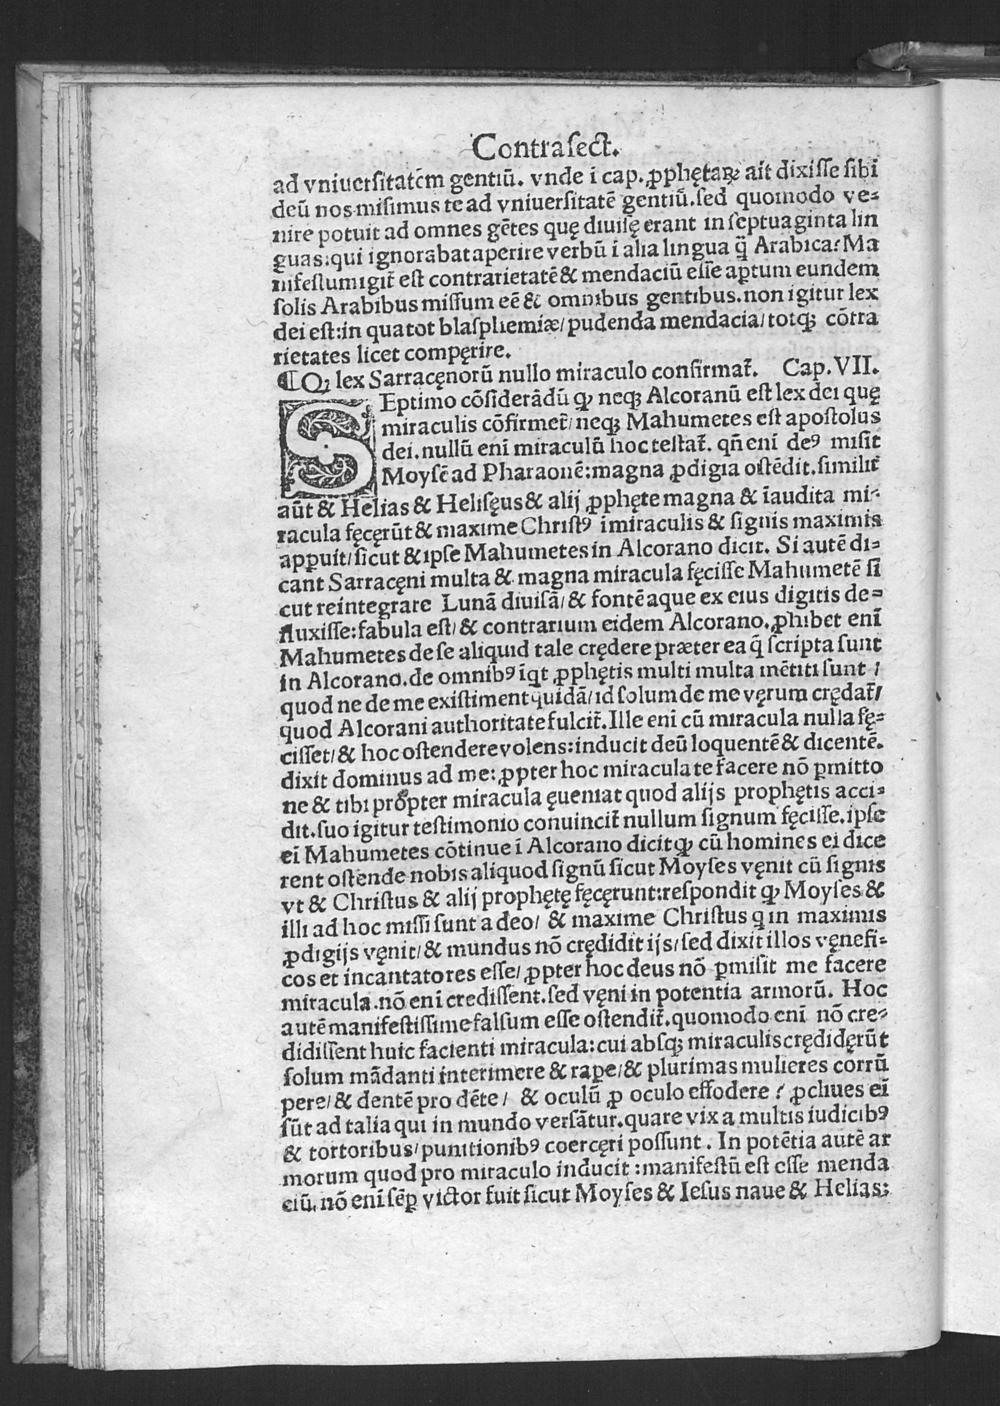 Contra sect.
ad vniuersitatem gentiū. vnde ī cap. ꝓphętaꝝ ait dixisse sibi
deū nos misimus te ad vniuersitatē gentiū. sed quomodo ve⸗
nire potuit ad omnes gētes quę diuisę erant in septuaginta lin
guas: qui ignorabat aperire verbū ī alia lingua q̄ Arabica: Ma
nifestum igiť est contrarietatē & mendaciū esse apertum eundem
solis Arabibus missum eē & omnibus gentibus. non igitur lex
dei est: in qua tot blasphemiæ/ pudenda mendacia/ totqꝫ cōtra
rietates licet compęrire.
¶ Qꝫ lex Sarracęnorū nullo miraculo confirmať. Cap. VII.
SEptimo cōsiderādū ꝙ neqꝫ Alcoranū est lex dei quę
miraculis cōfirmeť/ neqꝫ Mahumetes est apostolus
dei. nullū enī miraculū hoc testať. qn̄ enī deꝰ misit
Moysē ad Pharaonē: magna ꝓdigia ostēdit. similiť
aūt & Helias & Helisęus & alij ꝓphęte magna & īaudita mi⸗
racula fęcęrūt & maxime Christꝰ ī miraculis & signis maximis
apꝑuit/ sicut & ipse Mahumetes in Alcorano dicit. Si autē di⸗
cant Sarracęni multa & magna miracula fęcisse Mahumetē si
cut reintegrare Lunā diuisā/ & fontē aque ex eius digitis de⸗
fluxisse: fabula est/ & contrarium eidem Alcorano. ꝓhibet enī
Mahumetes de se aliquid tale crędere præter ea q̄ scripta sunt
in Alcorano. de omnibꝰ īqt ꝓphętis multi multa mētiti sunt /
quod ne de me existiment quidā/ id solum de me vęrum crędať/
quod Alcorani authoritate fulciť. Ille enī cū miracula nulla fę⸗
cisset/ & hoc ostendere volens: inducit deū loquentē & dicentē.
dixit dominus ad me: ꝓpter hoc miracula te facere nō ꝑmitto
ne & tibi propter miracula ęueniat quod alijs prophętis acci⸗
dit. suo igitur testimonio conuinciť nullum signum fęcisse. ipse
eī Mahumetes cōtinue ī Alcorano dicit ꝙ cū homines ei dice
rent ostende nobis aliquod signū sicut Moyses vęnit cū signis
vt & Christus & alij prophętę fęcęrunt: respondit ꝙ Moyses &
illi ad hoc missi sunt a deo/ & maxime Christus q in maximis
ꝓdigijs vęnit/ & mundus nō crędidit ijs/ sed dixit illos vęnefi⸗
cos et incantatores esse/ ꝓpter hoc deus nō ꝑmisit me facere
miracula. nō enī credissent. sed vęni in potentia armorū. Hoc
autē manifestissime falsum esse ostendiť. quomodo enī nō cre⸗
didissent huic facienti miracula: cui absqꝫ miraculis crędidęrūt
solum mādanti interimere & raꝑe/ & plurimas mulieres corrū
pere/ & dentē pro dēte/ & oculū ꝓ oculo effodere? ꝓcliues eī
sūt ad talia qui in mundo versātur. quare vix a multis iudicibꝰ
& tortoribus/ punitionibꝰ coercęri possunt. In potētia autē ar
morum quod pro miraculo inducit: manifestū est esse menda
ciū, nō enī sēꝑ victor fuit sicut Moyses & Iesus naue & Helias: